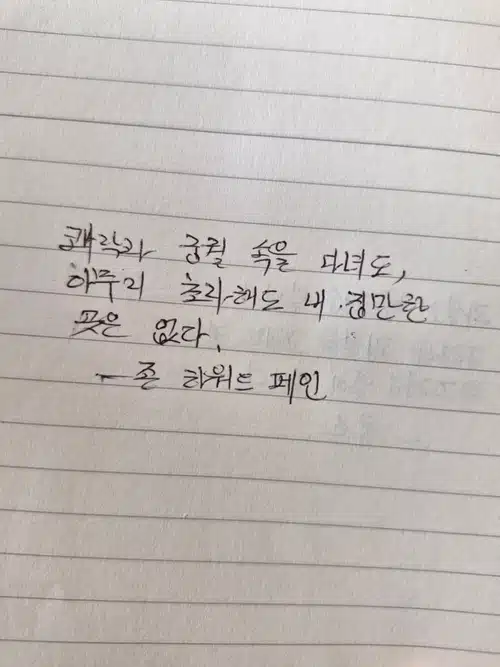 쾌락과 궁궐 속을 다녀도,
아무리 초라해도 내 집만한
곳은 없다.
- 존 하워드 페인